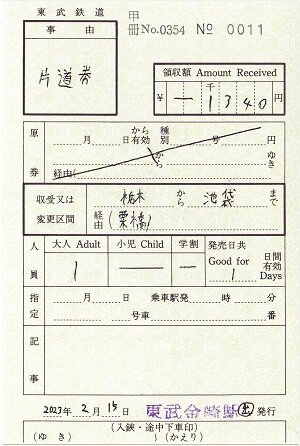 東武鉄道
甲
冊No.0354 No 0011
事由
片道券
領収額 Amount Received
千
¥ ー 1 3 4 0 円
原券
月 日から有効 種別 号 円
経由( から ゆき
収受又は変更区間
栃木 から 池袋 まで
経由(栗橋)
人員
大人 Adult 小児 Child 学割 発売日共
1 — — Good for 1 日間有効 Days
指定
月 日 乗車駅発 時 分
号車 番
記事
2023年 2月 15日 東武金崎駅 出 発行
(入鋏・途中下車印)
(ゆき) (かえり)